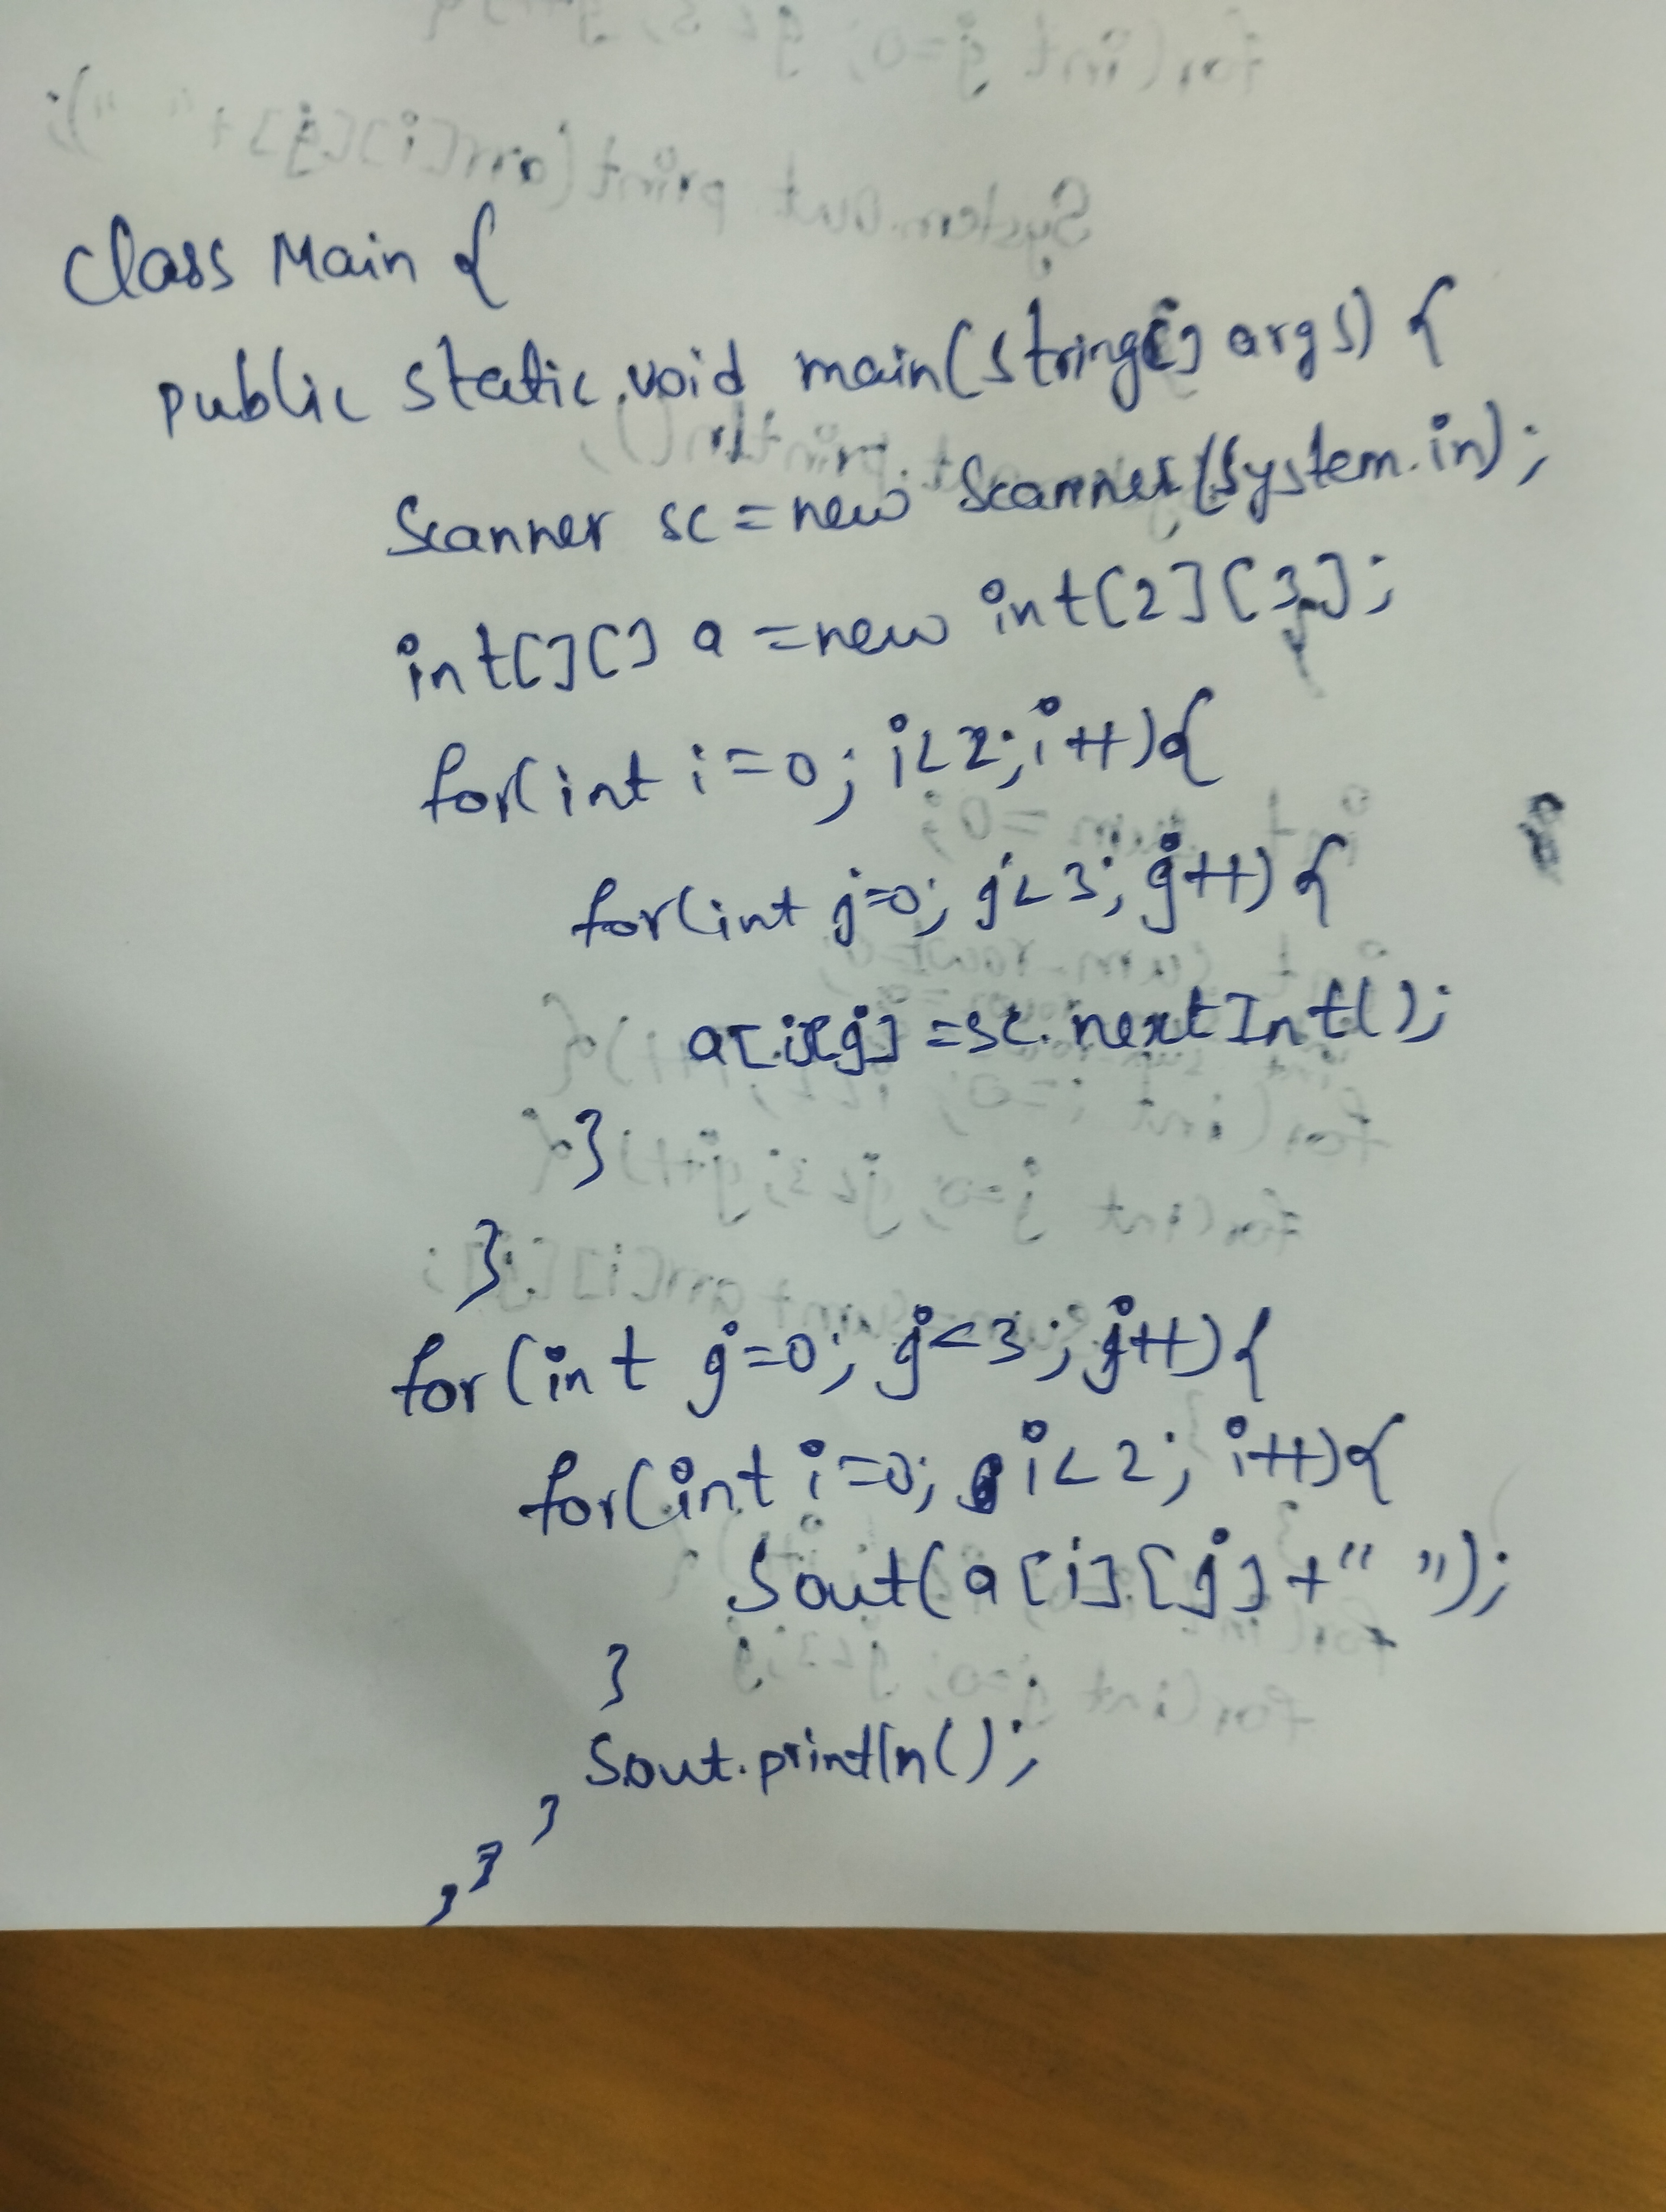 class Main {
public static void main(String[] args) {
Scanner sc = new Scanner(System.in);
int[][] a = new int[2][3];
for(int i=0; i<2; i++){
for(int j=0; j<3; j++) {
a[i][j] = sc.nextInt();
}
}
for(int j=0; j<3; j++){
for(int i=0; i<2; i++){
Sout(a[i][j]+" ");
}
Sout.println();
}
}
}